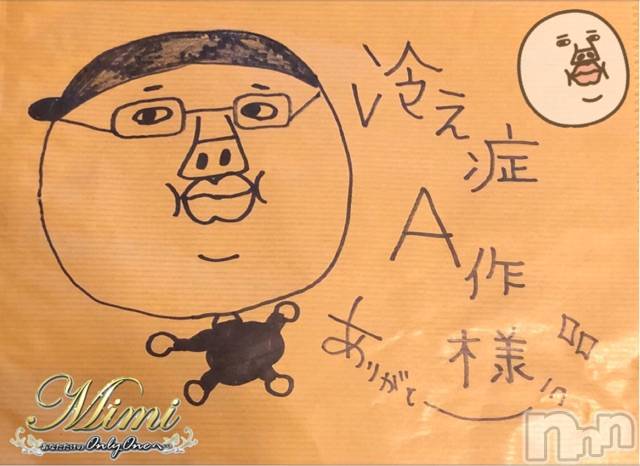 冷え症
A作
様
ありがと
Mimi
OnlyOne
nnn